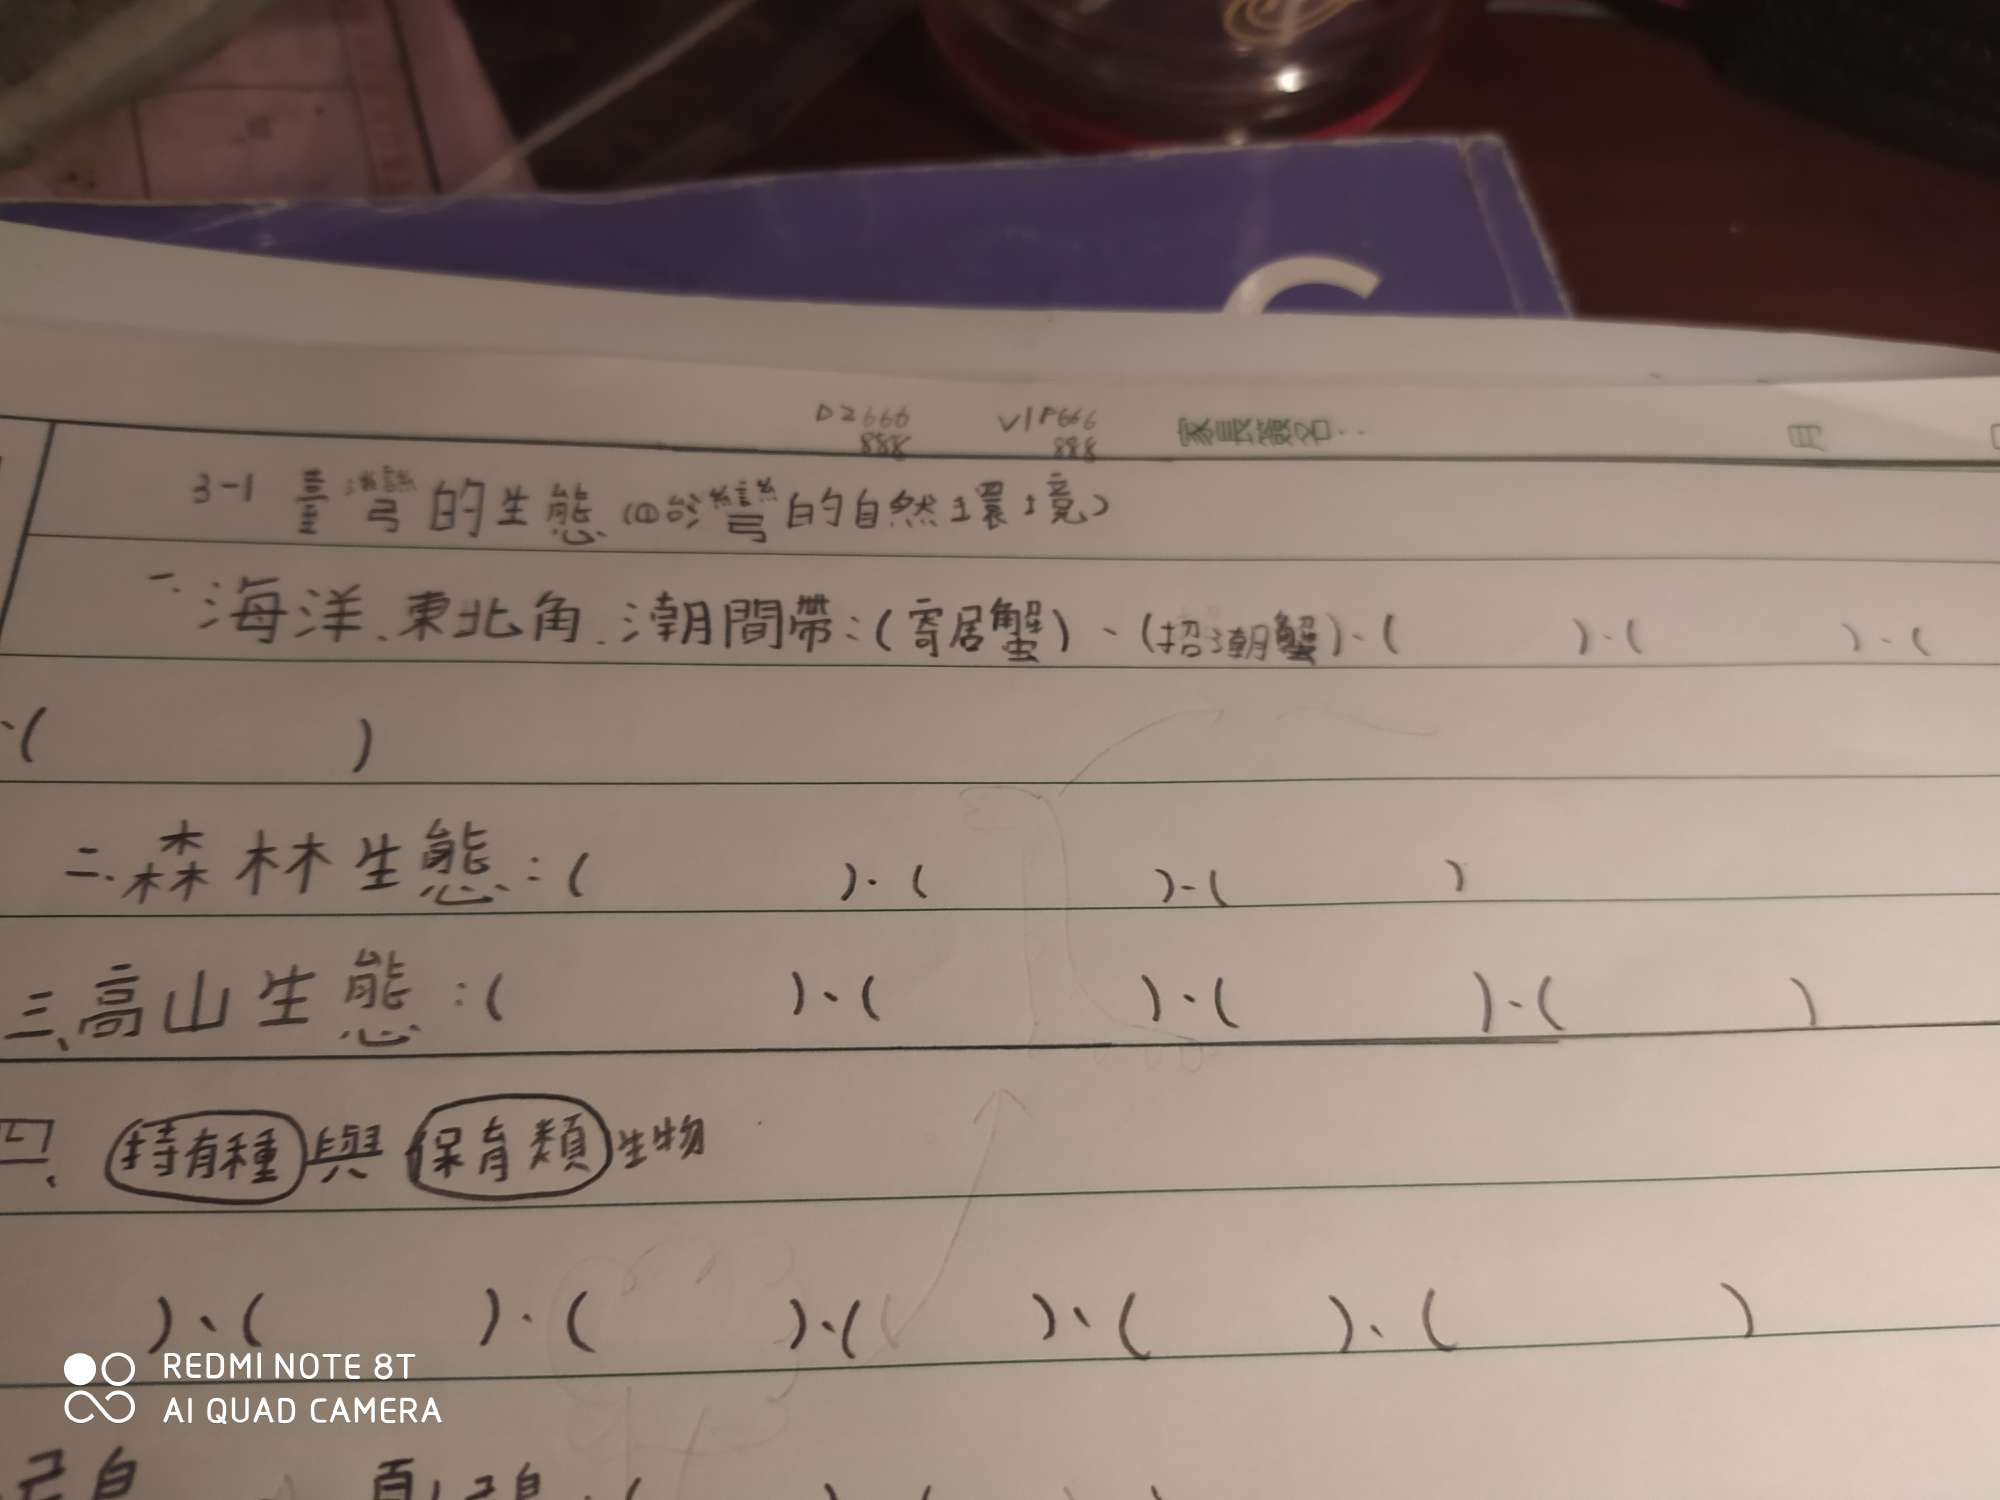 D2666 V1P666
888 888
月
3-1 臺灣的生態(四台灣的自然環境)
一、海洋、東北角、潮間帶:(寄居蟹)、(招潮蟹)、( )、( )、(
、( )
二、森林生態:( )、( )、( )
三、高山生態:( )、( )、( )、( )
四、特有種與保育類生物
)、( )、( )、( )、( )、( )
REDMI NOTE 8T
AI QUAD CAMERA